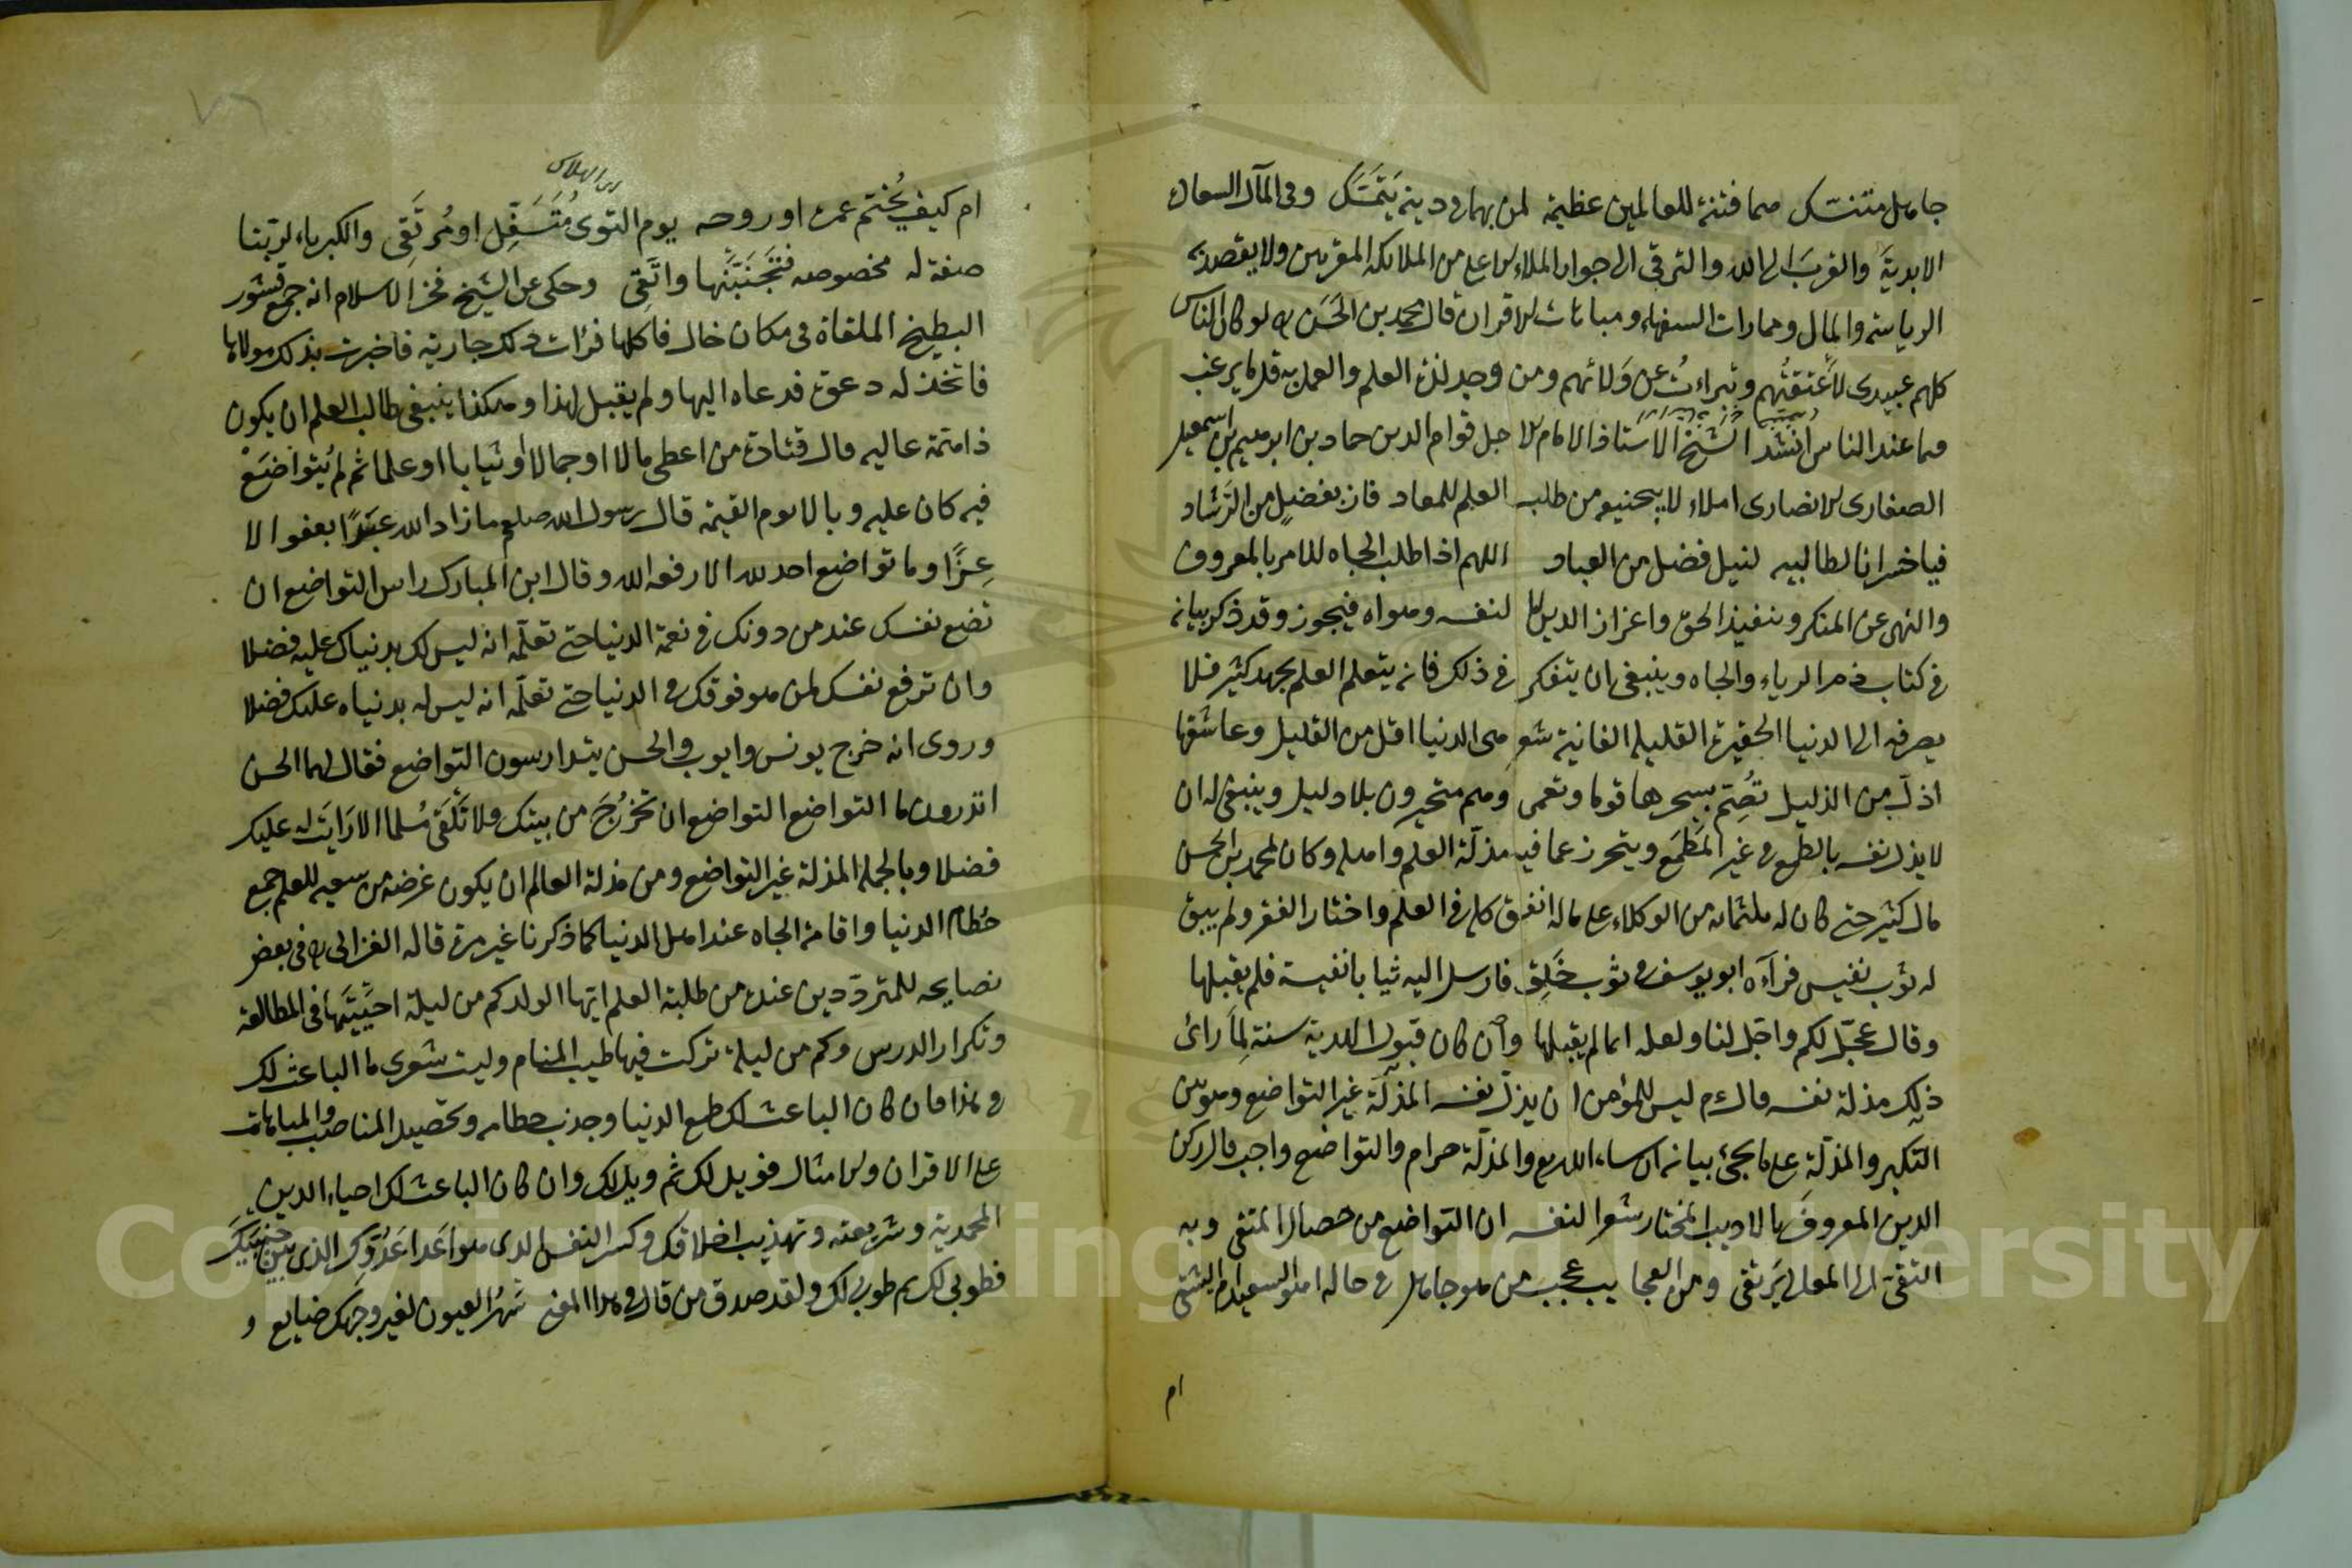 جاهل متنسك هما فتنة للعالمين عظيمة لمن بهما في دينه يتمسك وفي المآل السعادة
الابدية والقرب الى الله والترقي الى جوار الملاء الاعلى من الملائكة المقربين ولا يقصد به
الرياسة والمال ومماراة السفهاء ومباهات الاقران قال محمد بن الحسن ره لو كان الناس
كلهم عبيدي لاعتقتهم وتبراءت عن ولائهم ومن وجد لذة العلم والعمل به قلما يرغب
فيما عند الناس انشد الشيخ الاستاذ الامام الاجل قوام الدين حماد بن ابرهيم بن اسمعيل
الصفارى الانصارى املاء لابيحنيفه من طلب العلم للمعاد فاز بفضل من الرشاد
فيا خسرانا لطالبيه لنيل فضل من العباد اللهم اذا طلب الجاه للامر بالمعروف
والنهى عن المنكر وتنفيذ الحق واعزاز الدين لا لنفسه وهواه فيجوز وقد ذكر بيانه
في كتاب ذم الرياء والجاه وينبغى ان يتفكر في ذلك فانه يتعلم العلم بجهد كثير فلا
يصرفه الى الدنيا الحقيرة القليلة الفانية شعر هى الدنيا اقل من القليل وعاشقها
اذل من الذليل تصم بسحرها قوما وتعمى وهم متحيرون بلا دليل وينبغى له ان
لا يذل نفسه بالطمع في غير المطمع ويتحرز عما فيه مذلة العلم واهله وكان لمحمد بن الحسن
مال كثير حتى كان له ثلثمائه من الوكلاء على ماله انفق كله في العلم واختار الفقر ولم يبق
له ثوب نفيس فرآه ابو يوسف في ثوب خلق فارسل اليه ثيابا نفيسة فلم يقبلها
وقال عجل لكم واجل لنا ولعله انما لم يقبلها وان كان قبول الهدية سنة لما رائ
ذلك مذلة نفسه قال م ليس للمؤمن ان يذل نفسه المذلة غير التواضع وهو بين
التكبر والمذلة على ما يجئ بيانه ان شاء الله تع والمذلة حرام والتواضع واجب قال ركن
الدين المعروف بالاديب المختار شعرا لنفسه ان التواضع من خصال المتقى وبه
التقى الى المعالى يرتقى ومن العجايب عجب من هو جاهل في حاله اهو السعيد ام الشقى
ام
ام كيف يختم عمره او روحه يوم التوى متسفل او مرتقى والكبرياء لربنا
صفة له مخصوصه فتجنبنها واتقى وحكى عن الشيخ فخر الاسلام انه جمع قشور
البطيخ الملقاة في مكان خال فاكلها فرات ذلك جارية فاخبرت بذلك مولاها
فاتخذ له دعوة فدعاه اليها ولم يقبل لهذا وهكذا ينبغى لطالب العلم ان يكون
ذا همة عاليه قال قتادة من اعطى مالا او جمالا او ثيابا او علما ثم لم يتواضع
فيه كان عليه وبالا يوم القيمة قال رسول الله صلعم ما زاد الله عبدا بعفو الا
عزا وما تواضع احد لله الا رفعه الله وقال ابن المبارك راس التواضع ان
تضع نفسك عند من دونك في نعمة الدنيا حتى تعلمه انه ليس لك بدنياك عليه فضلا
وان ترفع نفسك لمن هو فوقك في الدنيا حتى تعلمه انه ليس له بدنياه عليك فضلا
وروى انه خرج يونس وايوب والحسن يتدارسون التواضع فقال لهما الحسن
اتدرون ما التواضع التواضع ان تخرج من بيتك ولا تلقى مسلما الا رايت له عليك
فضلا وبالجملة المذلة غير التواضع ومن مذلة العالم ان يكون غرضه من سعيه للعلم جمع
حطام الدنيا واقامة الجاه عند اهل الدنيا كما ذكرنا غير مرة قاله الغزالى ره في بعض
نصايحه للمترددين عنده من طلبة العلم ايها الولد كم من ليلة احييتها في المطالعة
وتكرار الدرس وكم من ليلة تركت فيها طيب المنام وليت شعرى ما الباعث لك
في هذا فان كان الباعث لك طمع الدنيا وجذب حطامه وتحصيل المناصب والمباهات
على الاقران والامثال فويل لك ثم ويل لك وان كان الباعث لك احياء الدين
المحمدية وشريعته وتهذيب اخلاقك وكسر النفس الذى هو اعدا عدوك الذى بين جنبيك
فطوبى لك ثم طوبى لك ولقد صدق من قال في هذا المعنى سهر العيون لغير وجهك ضايع و
٧٦
Copyright © King Saud University